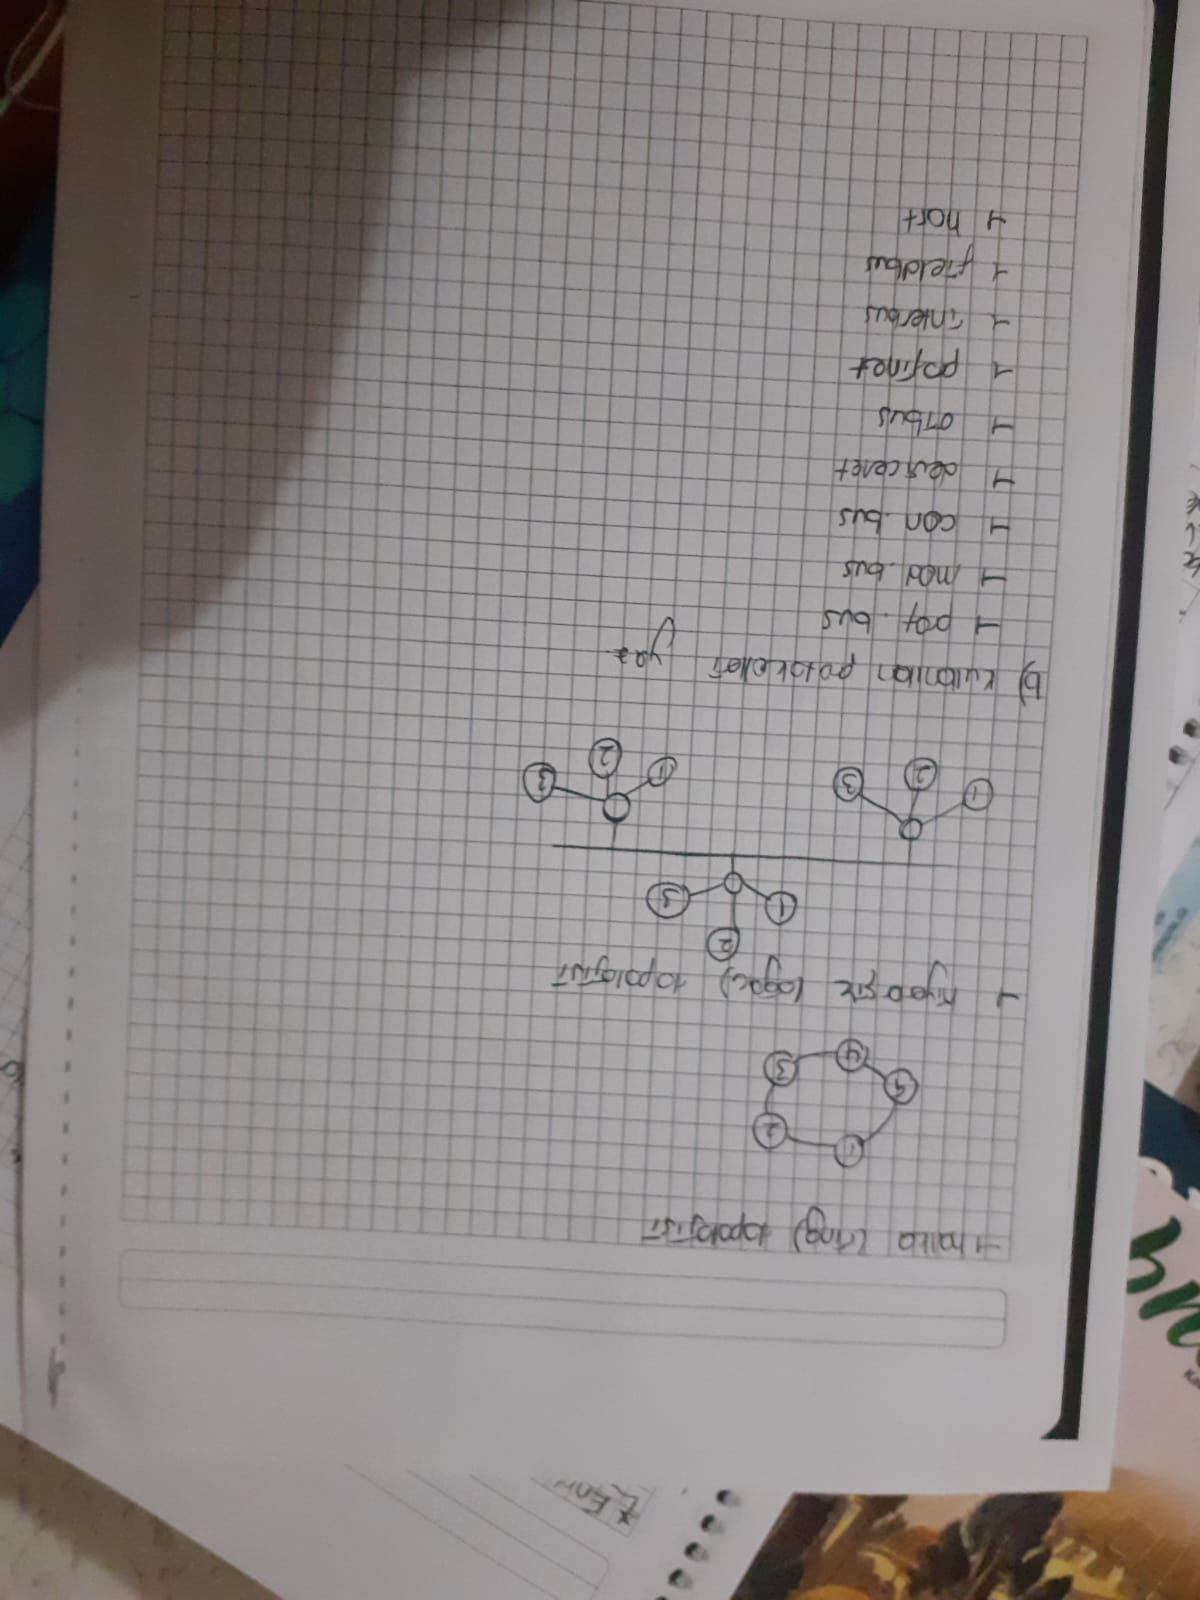 → halka (ring) topolojisi
1
2
3
4
4
→ hiyerarşik (ağaç) topolojisi
2
1
3
1
2
3
1
2
3
b) kullanılan protokolleri yaz
→ prof.bus
→ mod.bus
→ can.bus
→ devicenet
→ profinet
→ interbus
→ fieldbus
→ hart